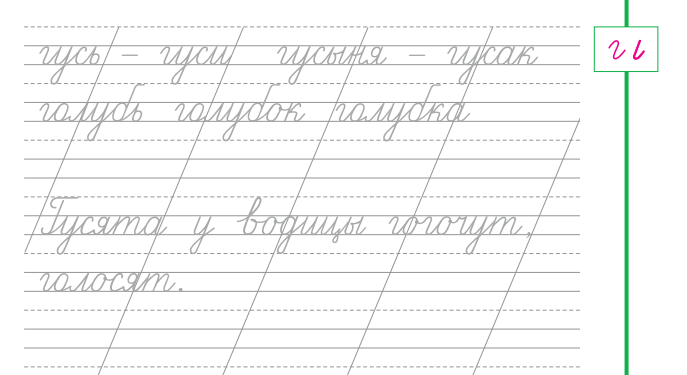 гусь – гуси гусыня – гусак
г и
голубь голубок голубка
Гусята у водицы гогочут,
голосят.